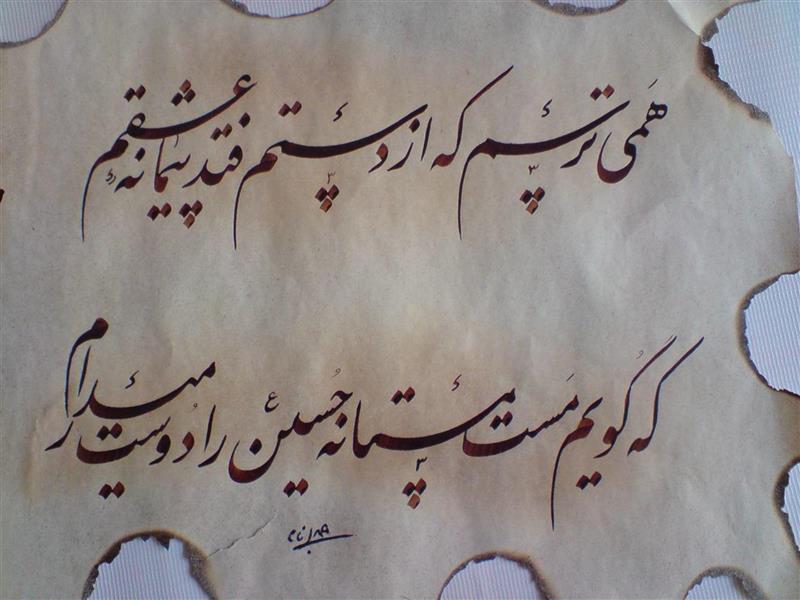 هَمی ترسم که از دستم فتد پیمانهٔ عشقم
که گُویم مَست مستانه حُسین ع را دُوست میدارم